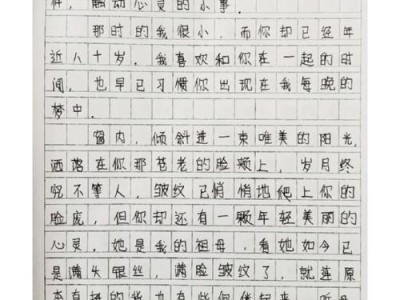 件，触动心灵的小事．
那时的我很小，而你却已经年
近八十岁．我喜欢和你在一起的时
间，也早已习惯你出现在我每晚的
梦中．
窗内，倾斜进一束唯美的阳光，
洒落在你那苍老的脸颊上，岁月终
究不等人，皱纹已悄悄地爬上你的
脸庞，但你却还有一颗年轻美丽的
心灵，她是我的祖母，看她如今已
是满头银丝，满脸皱纹了，就连原
本直挺的背也有些佝偻起来，近